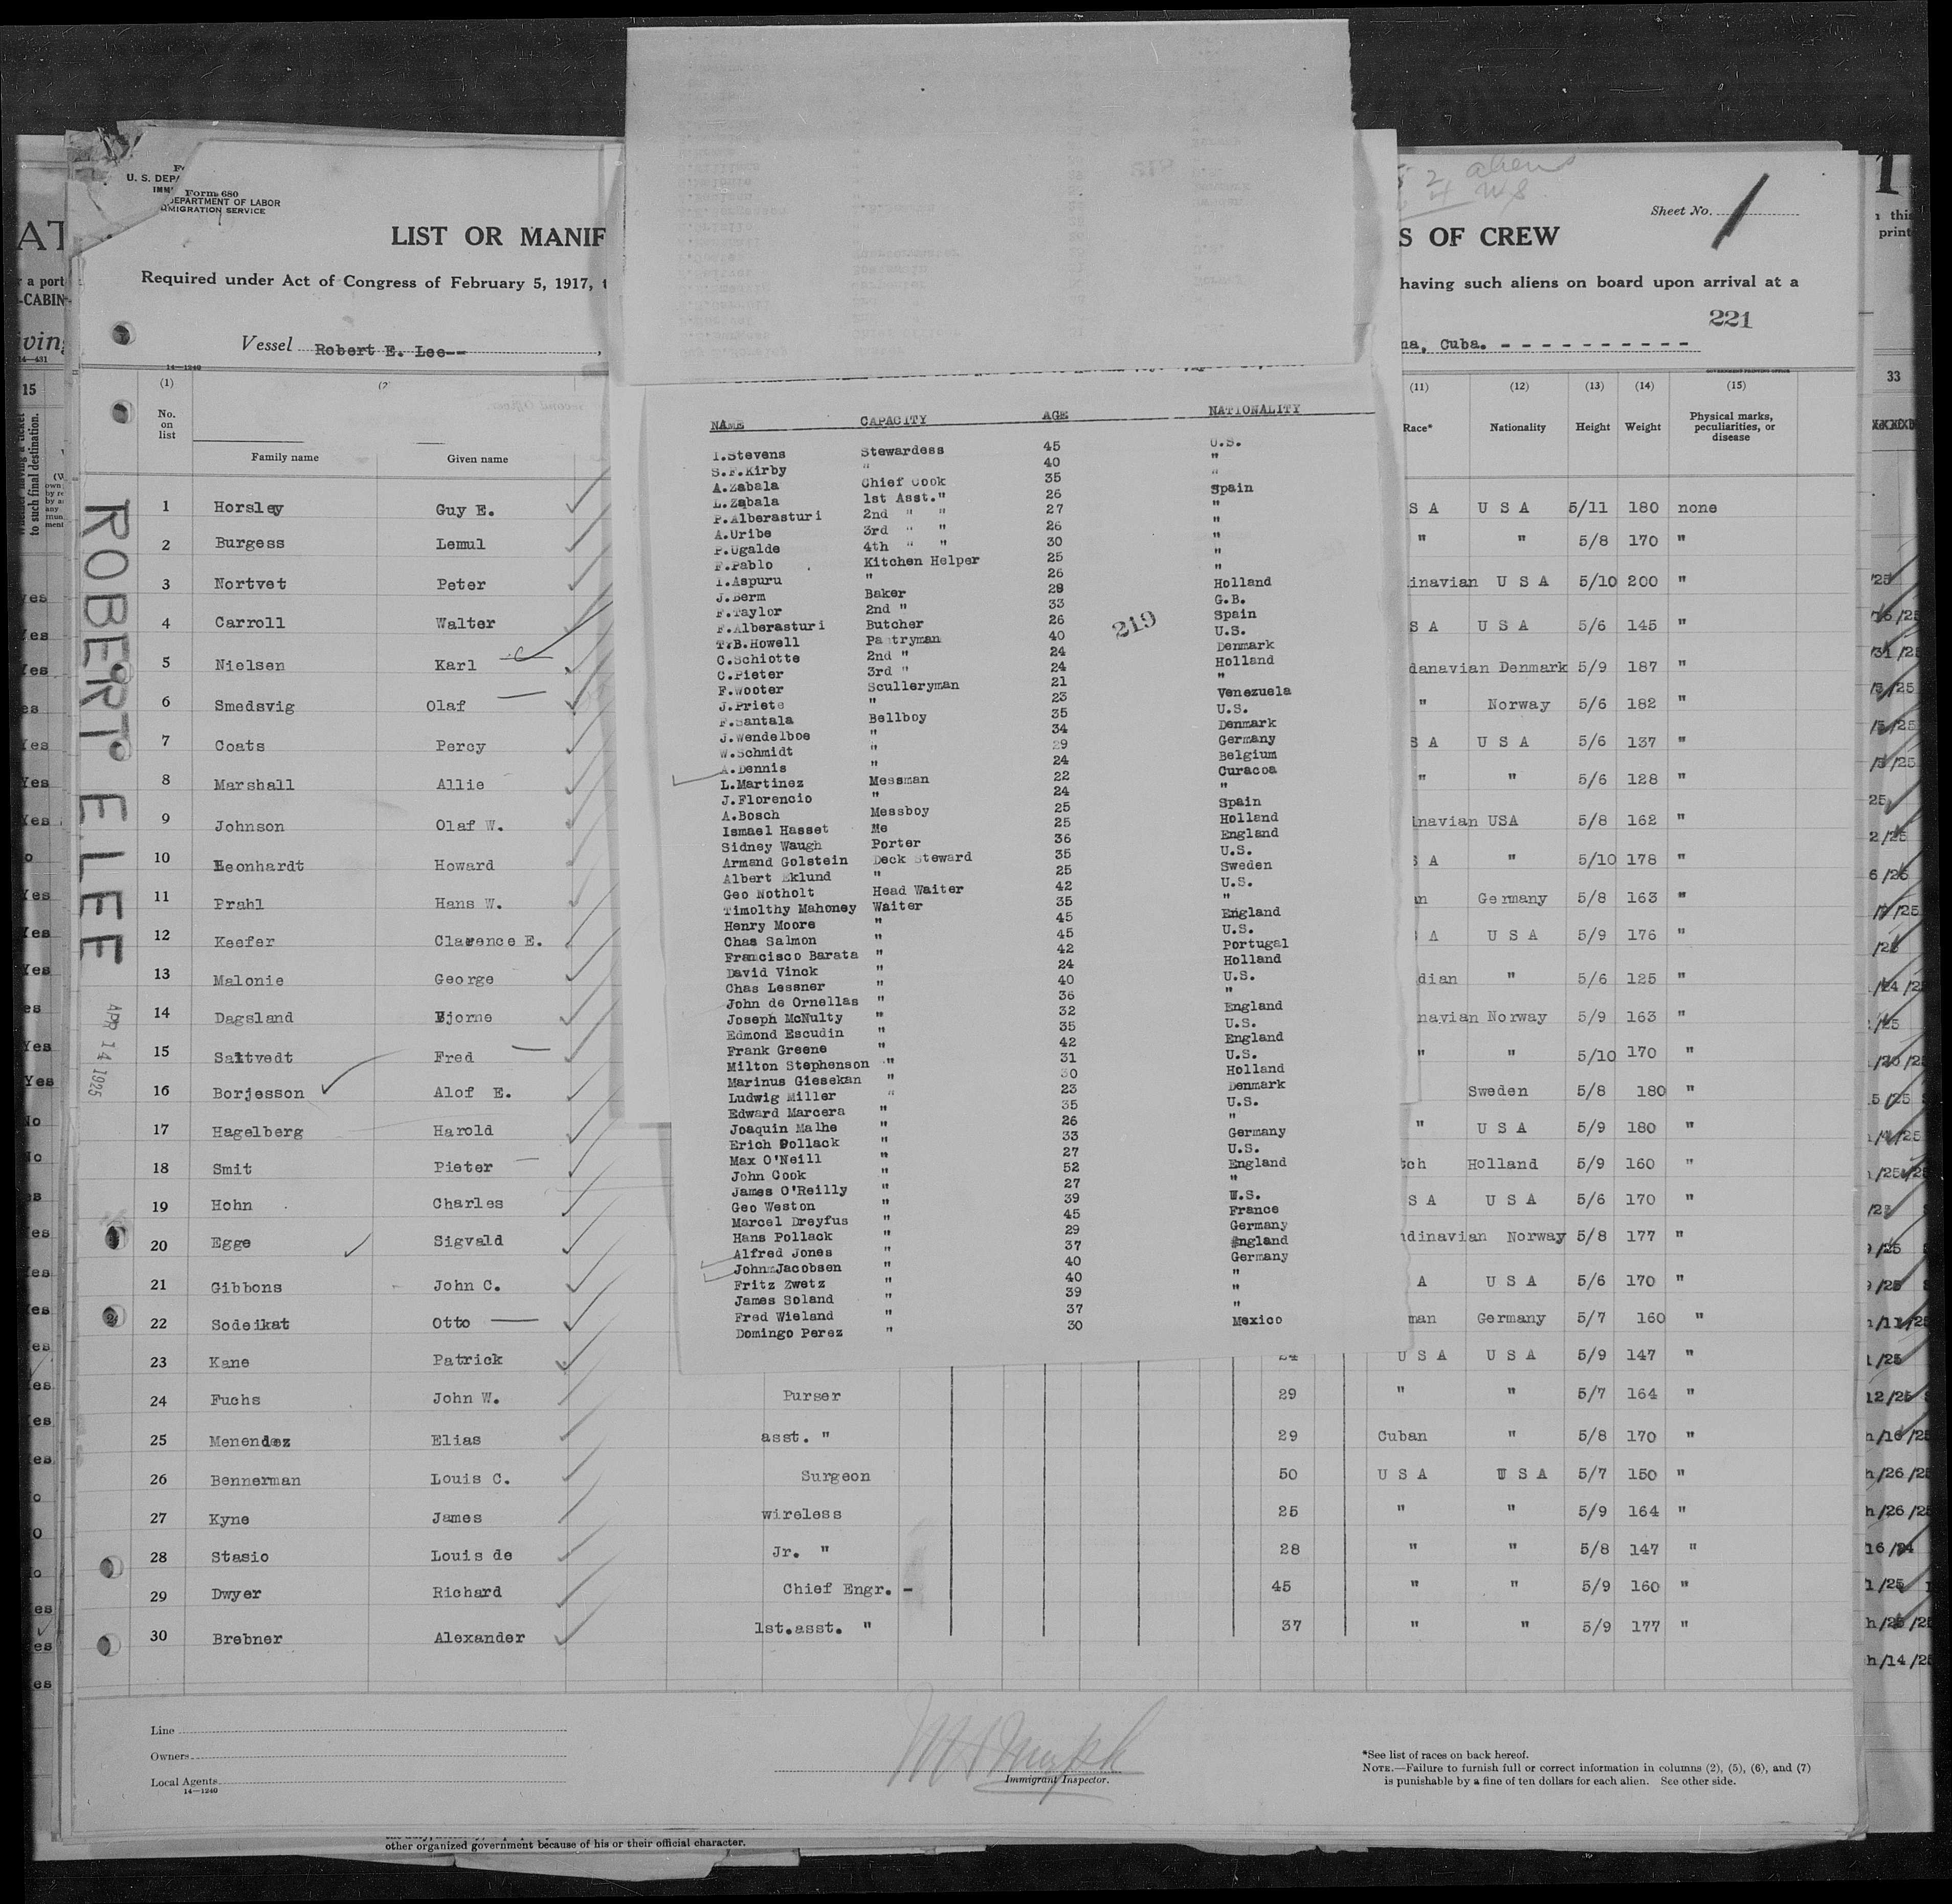 Form 680
U. S. DEPARTMENT OF LABOR
IMMIGRATION SERVICE
aliens
Sheet No. 1
LIST OR MANIF
S OF CREW
Required under Act of Congress of February 5, 1917, t
having such aliens on board upon arrival at a
221
Vessel Robert E. Lee--
na, Cuba. - - - - - - - - - -
ROBERT E. LEE
APR 14 1925
(1) No. on list
Family name Given name
(11) Race* (12) Nationality (13) Height (14) Weight (15) Physical marks, peculiarities, or disease
1 Horsley Guy E. S A U S A 5/11 180 none
2 Burgess Lemul " " 5/8 170 "
3 Nortvet Peter inavian U S A 5/10 200 "
4 Carroll Walter S A U S A 5/6 145 "
5 Nielsen Karl danavian Denmark 5/9 187 "
6 Smedsvig Olaf " Norway 5/6 182 "
7 Coats Percy S A U S A 5/6 137 "
8 Marshall Allie " " 5/6 128 "
9 Johnson Olaf W. navian USA 5/8 162 "
10 Leonhardt Howard S A " 5/10 178 "
11 Prahl Hans W. an Germany 5/8 163 "
12 Keefer Clarence E. A U S A 5/9 176 "
13 Malonie George dian " 5/6 125 "
14 Dagsland Bjorne navian Norway 5/9 163 "
15 Saltvedt Fred " " 5/10 170 "
16 Borjesson Alof E. Sweden 5/8 180 "
17 Hagelberg Harold " U S A 5/9 180 "
18 Smit Pieter tch Holland 5/9 160 "
19 Hohn Charles S A U S A 5/6 170 "
20 Egge Sigvald ndinavian Norway 5/8 177 "
21 Gibbons John C. A U S A 5/6 170 "
22 Sodeikat Otto man Germany 5/7 160 "
23 Kane Patrick 24 U S A U S A 5/9 147 "
24 Fuchs John W. Purser 29 " " 5/7 164 "
25 Menendez Elias asst. " 29 Cuban " 5/8 170 "
26 Bennerman Louis C. Surgeon 50 U S A U S A 5/7 150 "
27 Kyne James wireless 25 " " 5/9 164 "
28 Stasio Louis de Jr. " 28 " " 5/8 147 "
29 Dwyer Richard Chief Engr. - 45 " " 5/9 160 "
30 Brebner Alexander 1st.asst. " 37 " " 5/9 177 "
NAME CAPACITY AGE NATIONALITY
I.Stevens Stewardess 45 U.S.
S.F.Kirby " 40 "
A.Zabala Chief Cook 35 "
L.Zabala 1st Asst." 26 Spain
P.Alberasturi 2nd " " 27 "
A.Uribe 3rd " " 26 "
P.Ugalde 4th " " 30 "
F.Pablo Kitchen Helper 25 "
I.Aspuru " 26 "
J.Berm Baker 28 Holland
F.Taylor 2nd " 33 G.B.
F.Alberasturi Butcher 26 Spain
T.B.Howell Pantryman 40 U.S.
C.Schiotte 2nd " 24 Denmark
C.Pieter 3rd " 24 Holland
F.Wooter Sculleryman 21 "
J.Priete " 23 Venezuela
F.Santala Bellboy 35 U.S.
J.Wendelboe " 34 Denmark
W.Schmidt " 29 Germany
A.Dennis " 24 Belgium
L.Martinez Messman 22 Curacoa
J.Florencio " 24 "
A.Bosch Messboy 25 Spain
Ismael Hasset Me 25 Holland
Sidney Waugh Porter 36 England
Armand Golstein Deck Steward 35 U.S.
Albert Eklund " 25 Sweden
Geo Notholt Head Waiter 42 U.S.
Timolthy Mahoney Waiter 35 "
Henry Moore " 45 England
Chas Salmon " 45 U.S.
Francisco Barata " 42 Portugal
David Vinck " 24 Holland
Chas Lessner " 40 U.S.
John de Ornellas " 36 "
Joseph McNulty " 32 England
Edmond Escudin " 35 U.S.
Frank Greene " 42 England
Milton Stephenson " 31 U.S.
Marinus Giesekan " 30 Holland
Ludwig Miller " 23 Denmark
Edward Marcera " 35 U.S.
Joaquin Malhe " 26 "
Erich Pollack " 33 Germany
Max O'Neill " 27 U.S.
John Cook " 52 England
James O'Reilly " 27 "
Geo Weston " 39 U.S.
Marcel Dreyfus " 45 France
Hans Pollack " 29 Germany
Alfred Jones " 37 England
John Jacobsen " 40 Germany
Fritz Zwetz " 40 "
James Soland " 39 "
Fred Wieland " 37 "
Domingo Perez " 30 Mexico
219
Line
Owners
Local Agents
14—1240
Immigrant Inspector.
*See list of races on back hereof.
NOTE.—Failure to furnish full or correct information in columns (2), (5), (6), and (7)
is punishable by a fine of ten dollars for each alien. See other side.
other organized government because of his or their official character.